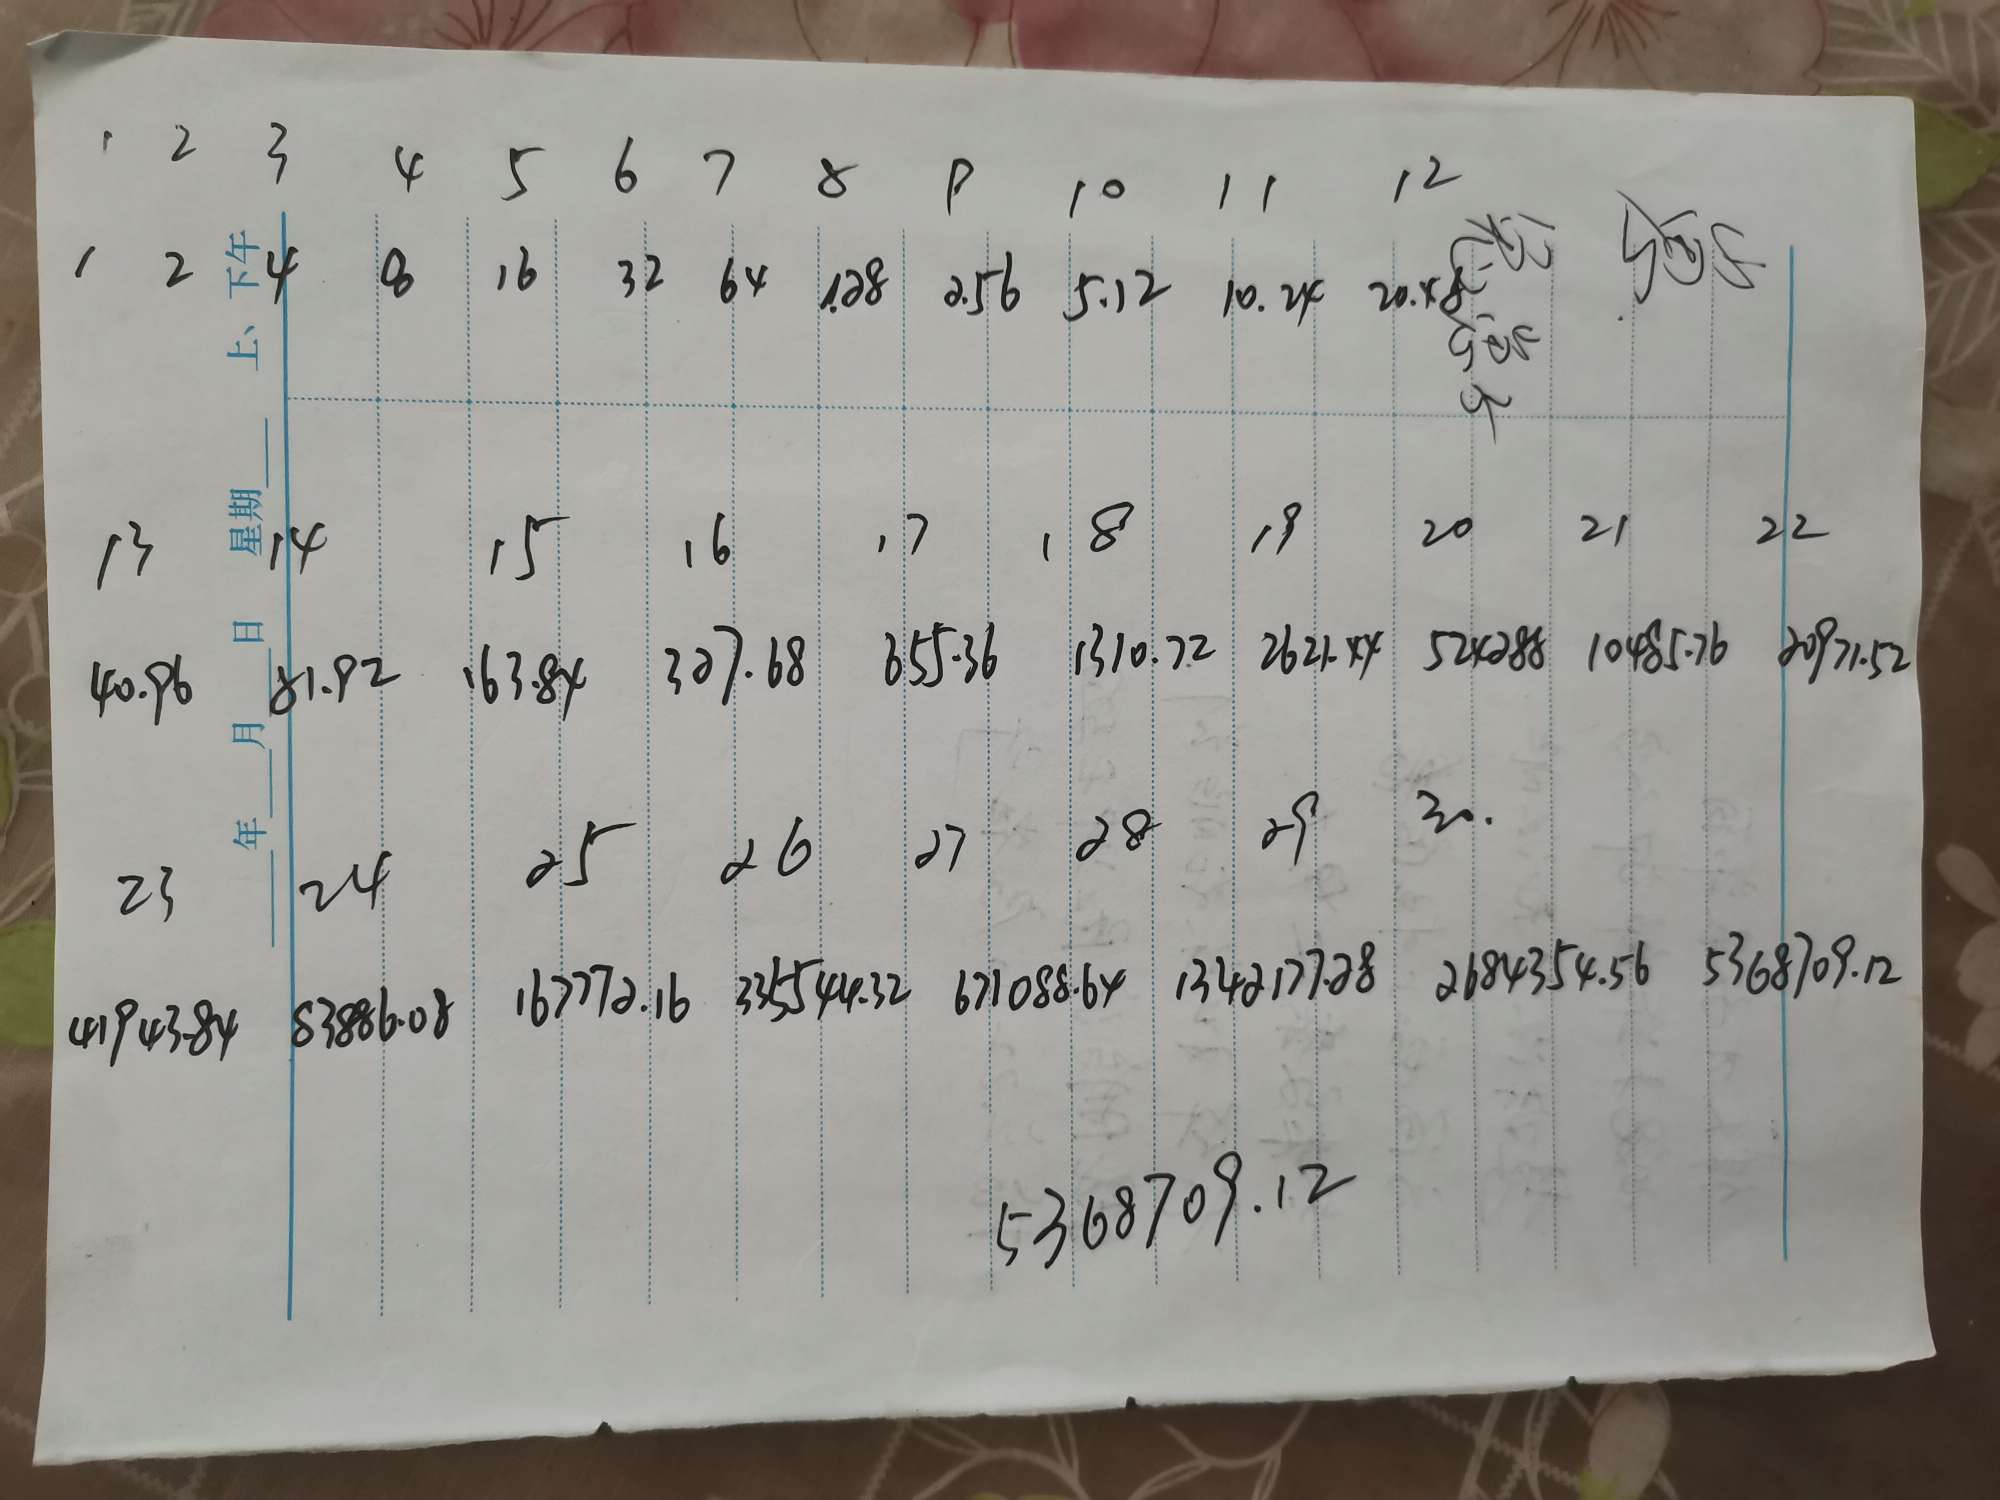 1 2 3 4 5 6 7 8 9 10 11 12
1 2 4 8 16 32 64 1.28 2.56 5.12 10.24 20.48
13 14 15 16 17 18 19 20 21 22
40.96 81.92 163.84 327.68 655.36 1310.72 2621.44 524288 10485.76 20971.52
23 24 25 26 27 28 29 30.
41943.84 83886.08 167772.16 335544.32 671088.64 1342177.28 2684354.56 5368709.12
5368709.12
年 月 日 星期 上、下午